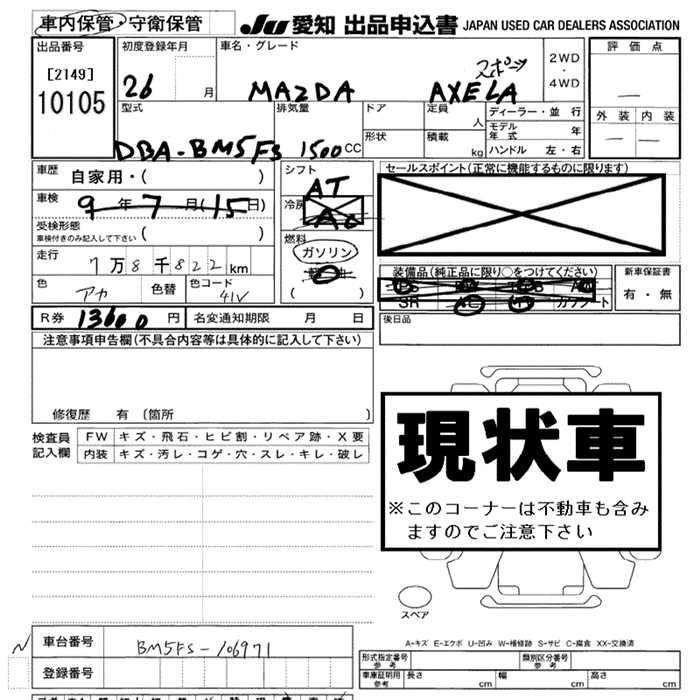 車内保管・守衛保管
JU 愛知 出品申込書 JAPAN USED CAR DEALERS ASSOCIATION
出品番号
[2149]
10105
初度登録年月
26
月
車名・グレード
スポーツ
MAZDA AXELA
2WD
・
4WD
評価点
外装 内装
型式
DBA-BM5FS
排気量
1500 CC
ドア
形状
定員
人
積載
kg
ディーラー・並行
モデル年式 年
ハンドル 左・右
車歴
自家用・( )
車検
9年7月(15日)
受検形態
車検付きのみ記入して下さい ( )
走行
7万8千822km
色
アカ
色替
色コード
41V
シフト
AT
冷房
AC
燃料
ガソリン
軽油
( )
セールスポイント(正常に機能するものに限ります)
装備品(純正品に限り○をつけてください)
SR カワシート
新車保証書
有・無
後日品
R券 13600円 名変通知期限 月 日
注意事項申告欄(不具合内容等は具体的に記入して下さい)
修復歴 有〔箇所 〕
検査員記入欄
FW キズ・飛石・ヒビ割・リペア跡・X要
内装 キズ・汚レ・コゲ・穴・スレ・キレ・破レ
現状車
※このコーナーは不動車も含みますのでご注意下さい
スペア
A-キズ E-エクボ U-凹み W-補修跡 S-サビ C-腐食 XX-交換済
車台番号
BM5FS-106971
登録番号
形式指定番号
参考
類別区分番号
参考
車庫証明用
参考
長さ cm
幅 cm
高さ cm